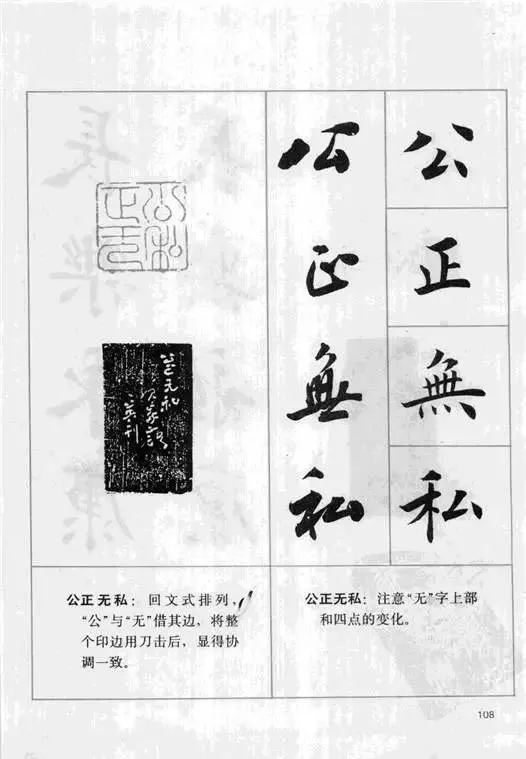 公正無私
公正無私
公正无私
公正无私：回文式排列，
“公”与“无”借其边，将整
个印边用刀击后，显得协
调一致。
公正无私：注意“无”字上部
和四点的变化。
108